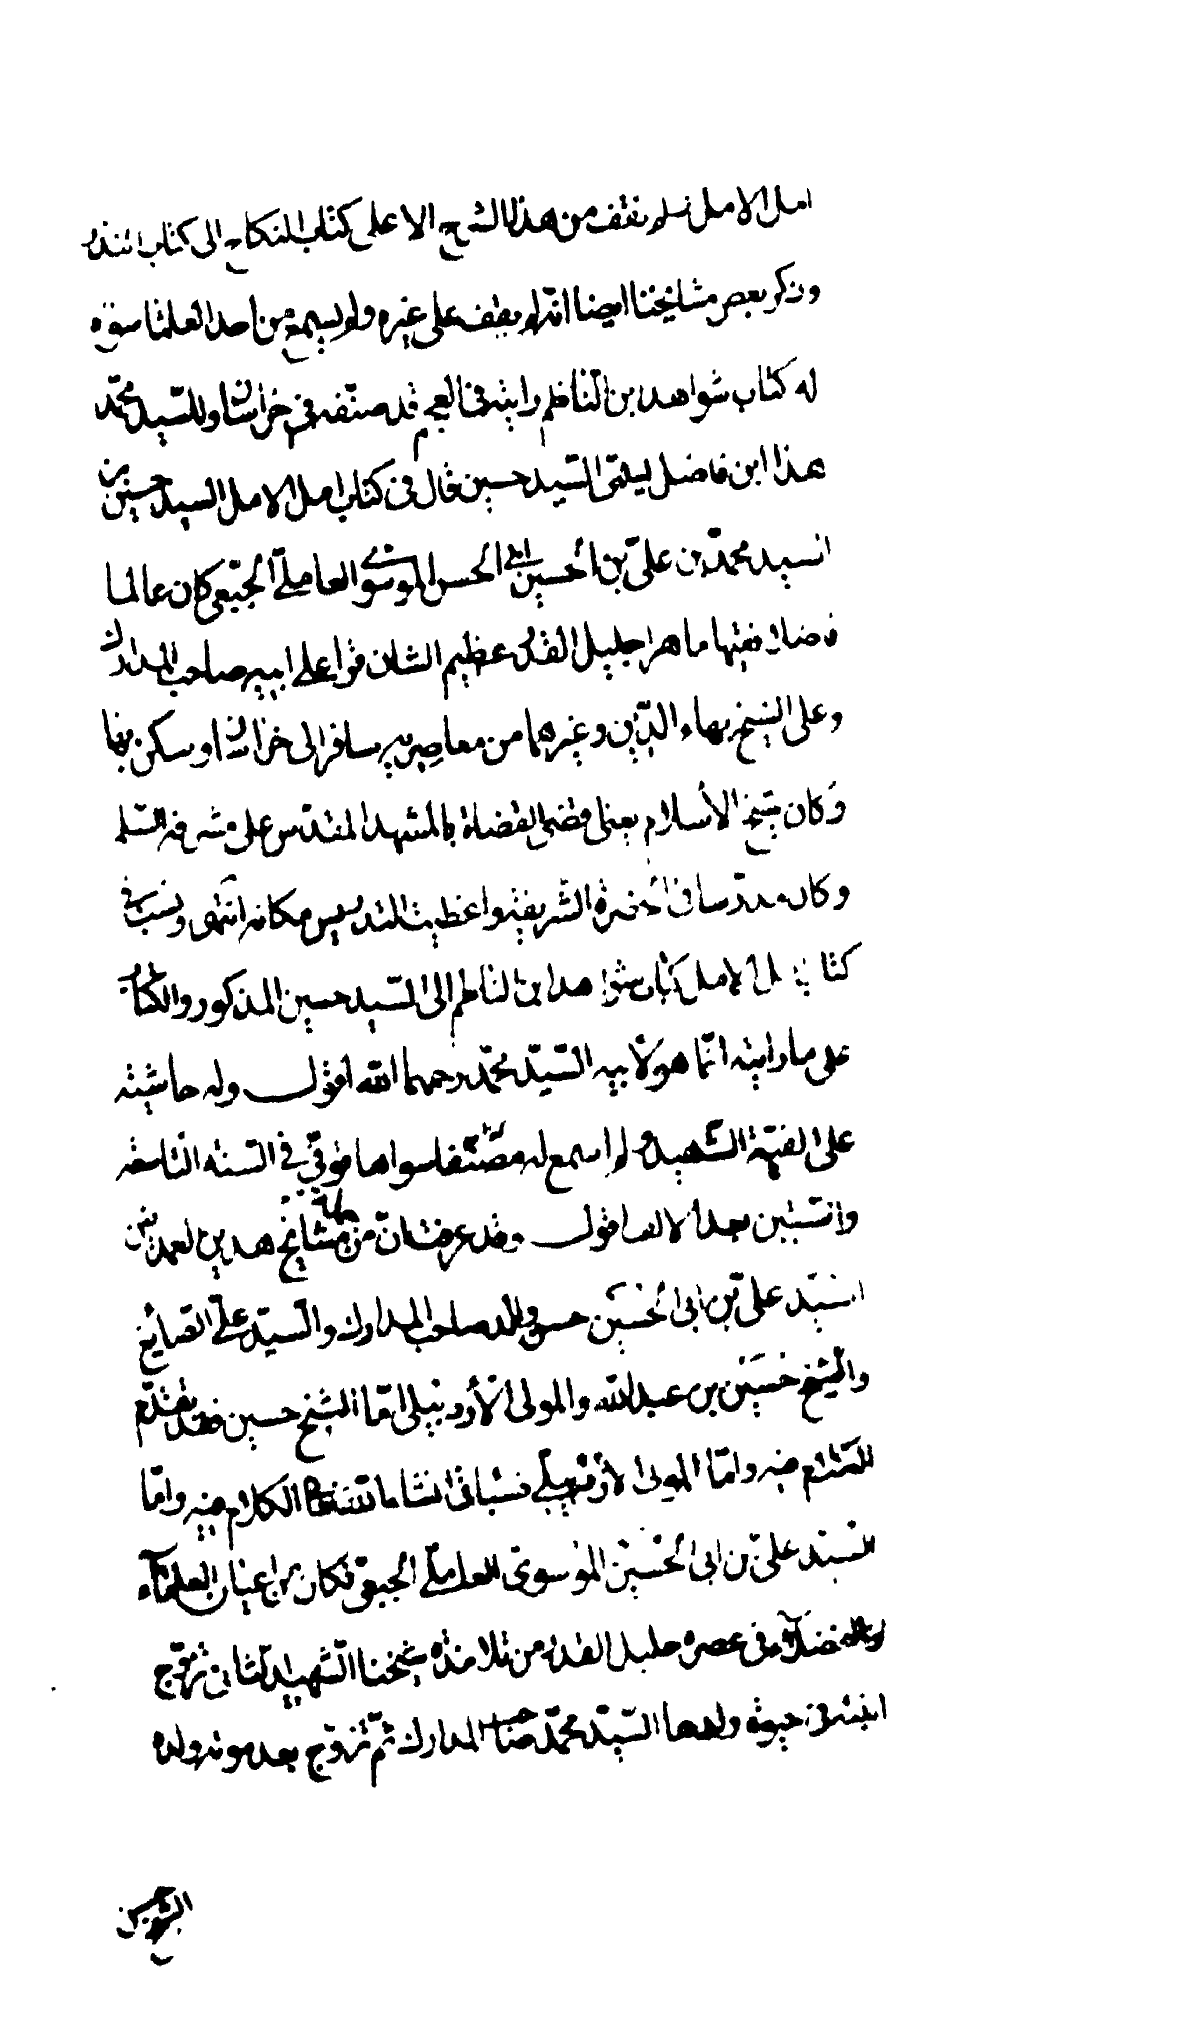 امل الامل فلم نقف من هذا الشرح الا على كتاب النكاح الى كتاب النذر
وذكر بعض مشايخنا ايضا انه لم يقف على غيره ولم يسمع من احد العلماء سوه
له كتاب شواهد بن الناظم رايته في العجم قد صنفه في خراسان وللسيد محمد
هذا ابن فاضل ليلقى السيد حسين قال في كتاب امل الامل السيد حسين بن
السيد محمد بن علي بن الحسين بن ابي الحسن الموسوي العاملي الجبعي كان عالما
فاضلا فقيها ماهرا جليل القدر عظيم الشان قرا على ابيه صاحب المدارك
وعلى الشيخ بهاء الدين وغيرهما من معاصريه سافر الى خراسان وسكن بها
وكان شيخ الأسلام يعنى قضى القضاة بالمشهد المقدس على مشرفه السلم
وكان مدرسا في الحضرة الشريفة واعطيت التدريس مكانه انتهى ونسب في
كتاب امل الامل كتاب شواهد ابن الناظم الى السيد حسين المذكور والكتاب
على ما رايته انما هو لابيه السيد محمد رحمهما الله اقول وله حاشيته
على الفية الشهيد ولم اسمع له مصنفا سواها توفى في السنه التاسعه
والستين بعد الالف اقول وقد عرفت ان من مشايخ هذين العمدتين
السيد علي بن ابي الحسين حسن والد صاحب المدارك والسيد علي الصايغ
والشيخ حسين بن عبد الله والمولى الأردبيلي اما الشيخ حسين فقد تقدم
الكلام فيه واما المولى الأردبيلي فسياتي انشا الله الكلام فيه واما
السيد علي بن ابي الحسين الموسوي العاملي الجبعي فكان من اعيان العلماء
والفضلاء في عصره جليل القدر من تلامذة شيخنا الشهيد الثاني تزوج
ابنته في حيوته ولدها السيد محمد صاحب المدارك ثم تزوج بعد موته ولده
الشيخ حسن